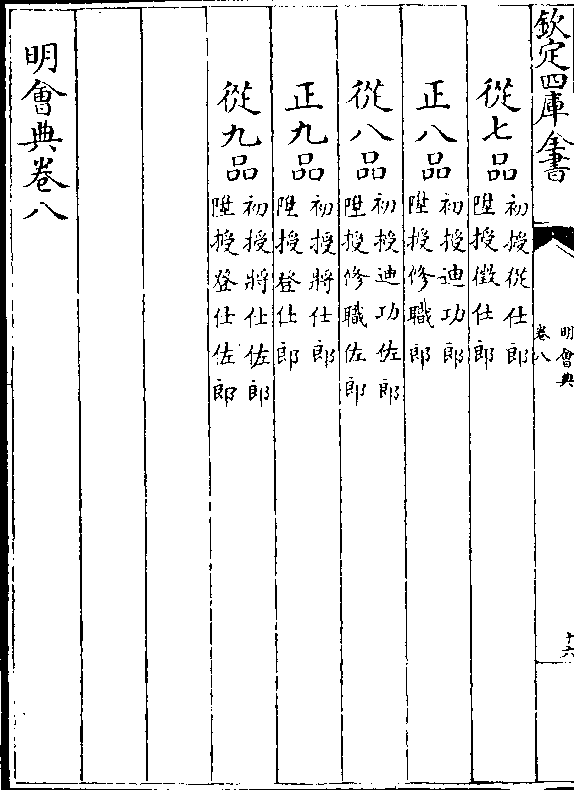 欽定四庫全書
明會典
卷八
十六
從七品
初授從仕郎
陞授徵仕郎
正八品
初授迪功郎
陞授修職郎
從八品
初授迪功佐郎
陞授修職佐郎
正九品
初授將仕郎
陞授登仕郎
從九品
初授將仕佐郎
陞授登仕佐郎
明會典卷八